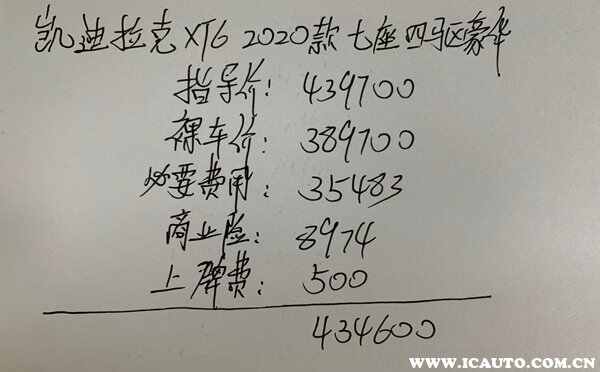 凯迪拉克XT6 2020款七座四驱豪华
指导价: 439700
裸车价: 389700
必要费用: 35483
商业险: 8974
上牌费: 500
434600
WWW.ICAUTO.COM.CN